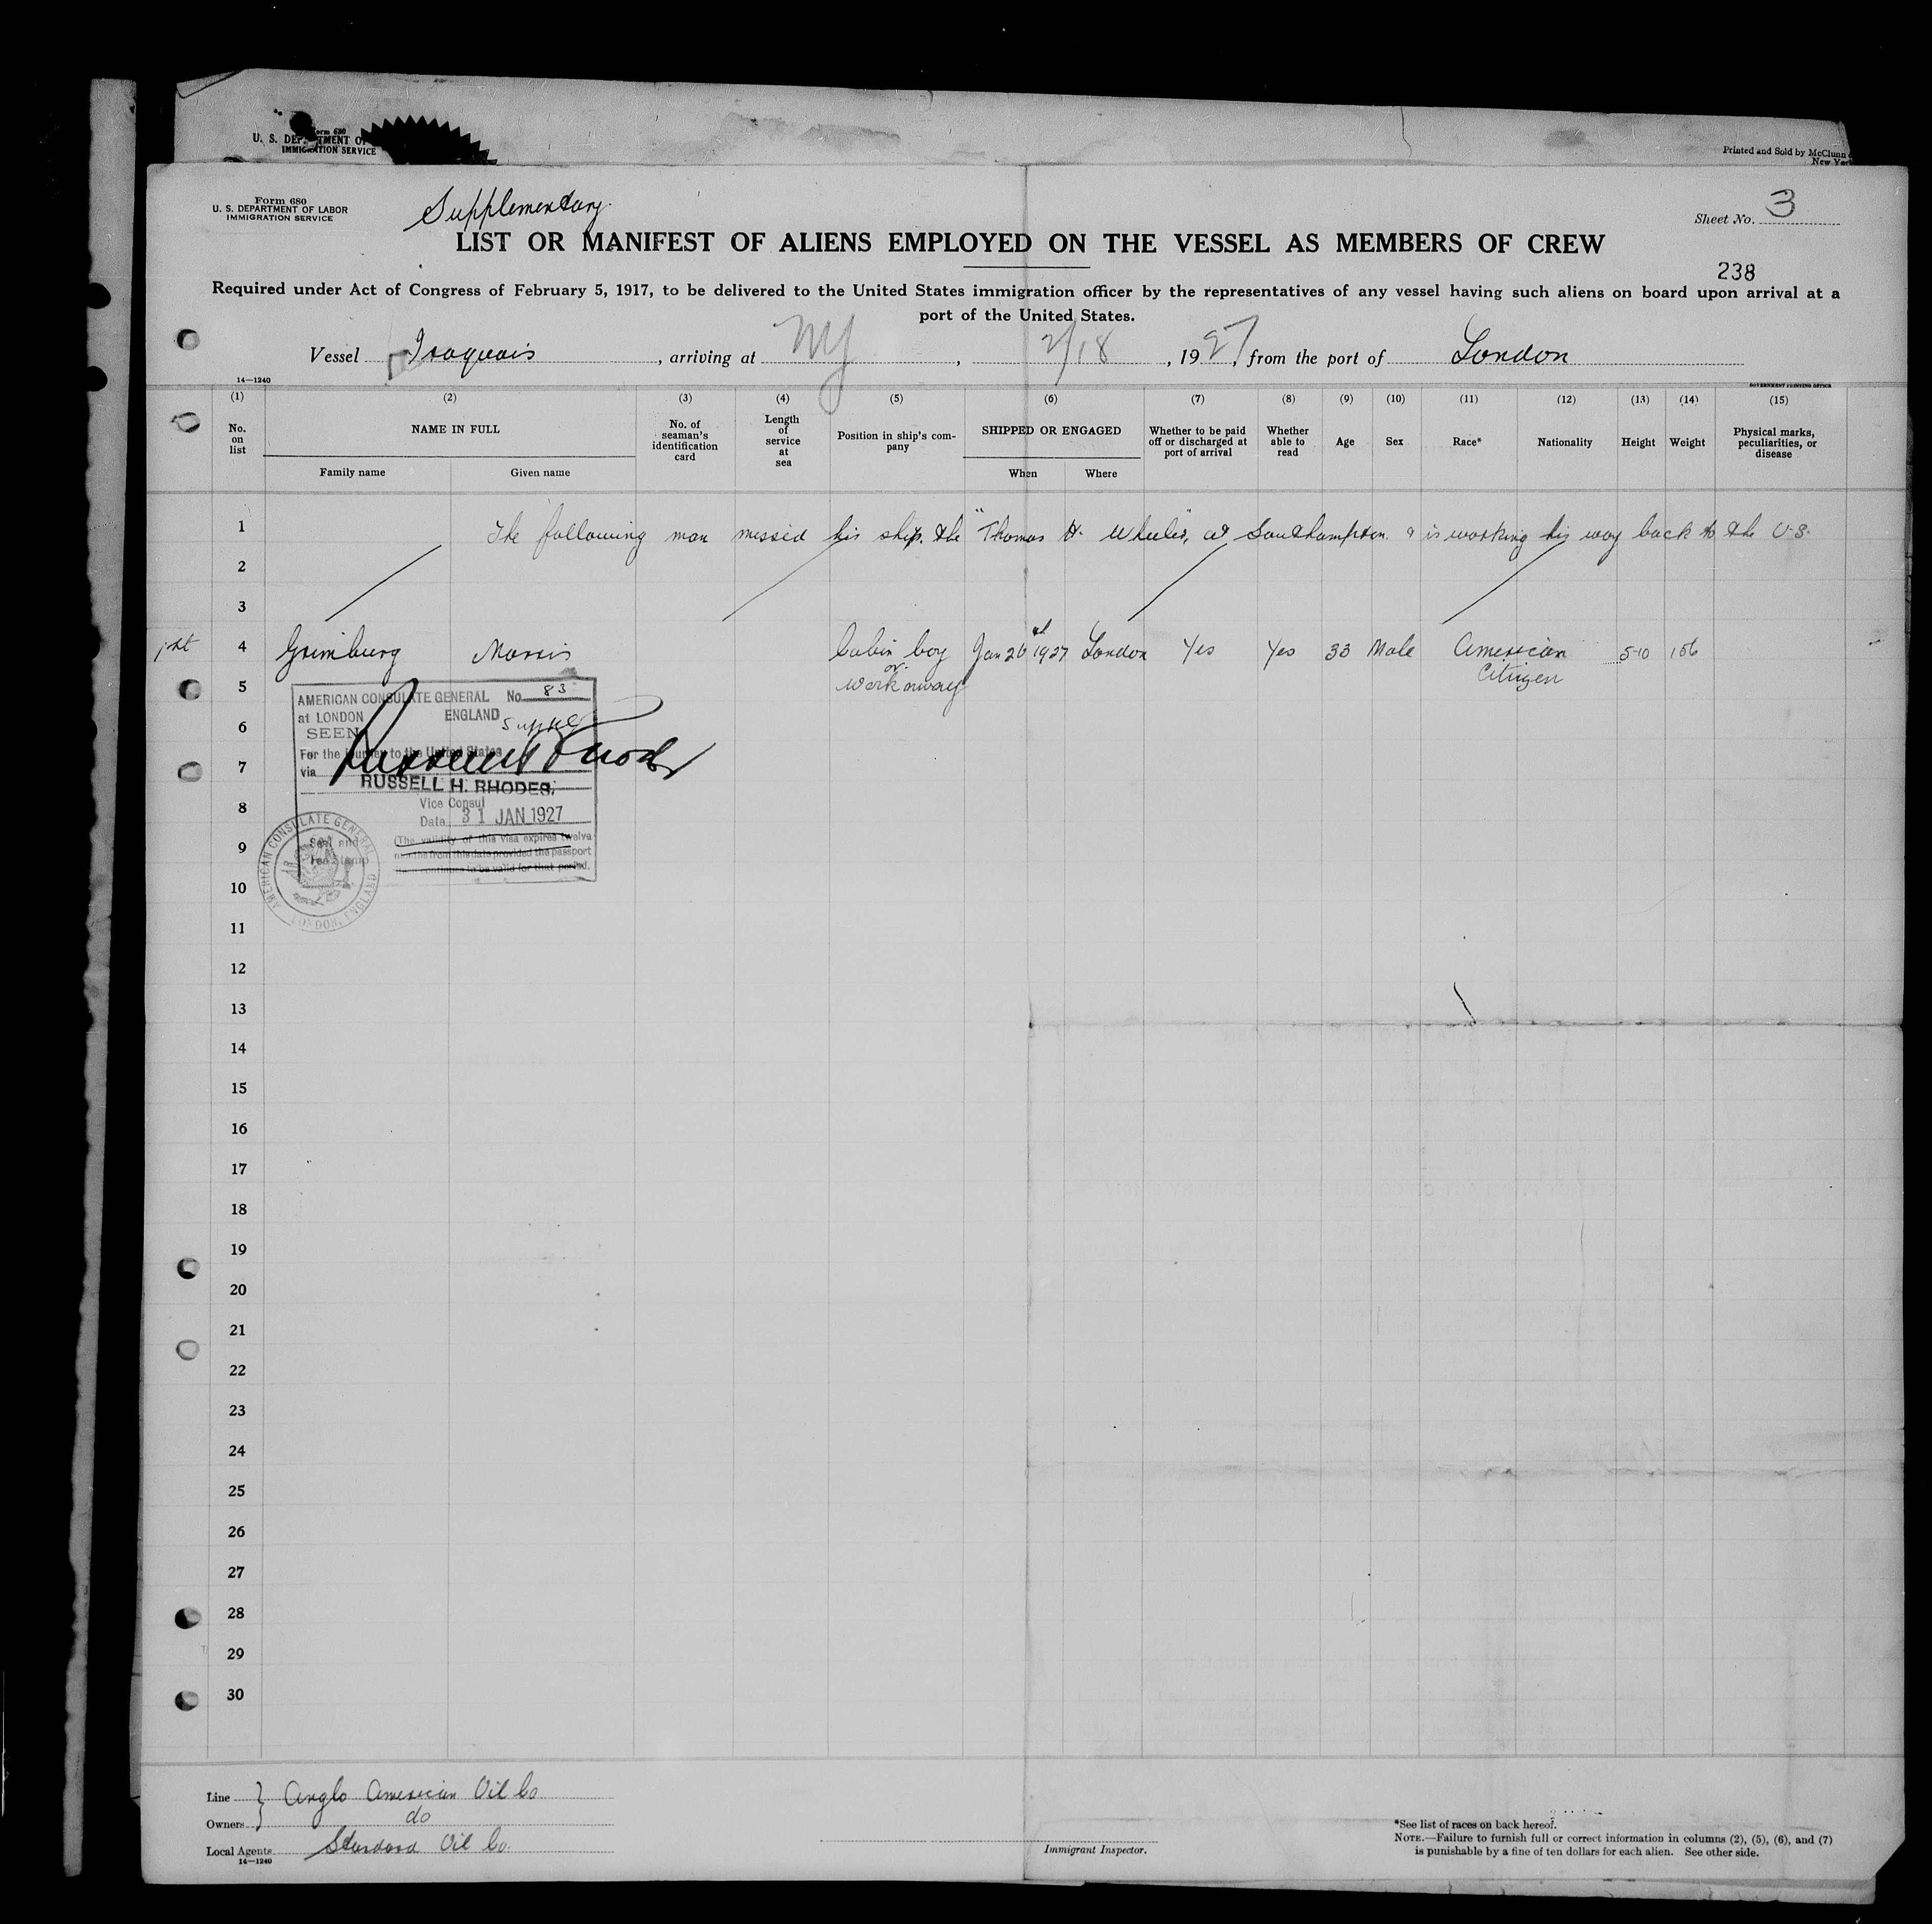 Form 680
U. S. DEPARTMENT OF
IMMIGRATION SERVICE
Printed and Sold by McClunn
New York
Form 680
U. S. DEPARTMENT OF LABOR
IMMIGRATION SERVICE
Supplementary
Sheet No. 3
LIST OR MANIFEST OF ALIENS EMPLOYED ON THE VESSEL AS MEMBERS OF CREW
238
Required under Act of Congress of February 5, 1917, to be delivered to the United States immigration officer by the representatives of any vessel having such aliens on board upon arrival at a
port of the United States.
Vessel Iroquois, arriving at NY, 2/18, 1927, from the port of London
14—1240
GOVERNMENT PRINTING OFFICE
(1) (2) (3) (4) (5) (6) (7) (8) (9) (10) (11) (12) (13) (14) (15)
No. on list
NAME IN FULL
Family name
Given name
No. of seaman's identification card
Length of service at sea
Position in ship's company
SHIPPED OR ENGAGED
When
Where
Whether to be paid off or discharged at port of arrival
Whether able to read
Age
Sex
Race*
Nationality
Height
Weight
Physical marks, peculiarities, or disease
1 The following man missed his ship. the "Thomas H. Wheeler", at Southampton. & is working his way back to the U.S.
2
3
4 Grimburg Morris Cabin boy Jan 26 1927 London Yes Yes 33 Male American 5-10 156
or
5 Workaway Citizen
AMERICAN CONSULATE GENERAL No. 83
at LONDON ENGLAND
SEEN
6
For the journey to the United States
7
via
RUSSELL H. RHODES,
Vice Consul
8
Date 31 JAN 1927
(The validity of this visa expires twelve
months from this date provided the passport
continues to be valid for that period.
Seal and
Fee stamp
AMERICAN CONSULATE GENERAL
LONDON, ENGLAND
9
10
11
12
13
14
15
16
17
18
19
20
21
22
23
24
25
26
27
28
29
30
Line } Anglo American Oil Co
Owners } do
Local Agents Standard Oil Co.
14—1240
Immigrant Inspector.
*See list of races on back hereof.
NOTE.—Failure to furnish full or correct information in columns (2), (5), (6), and (7)
is punishable by a fine of ten dollars for each alien. See other side.